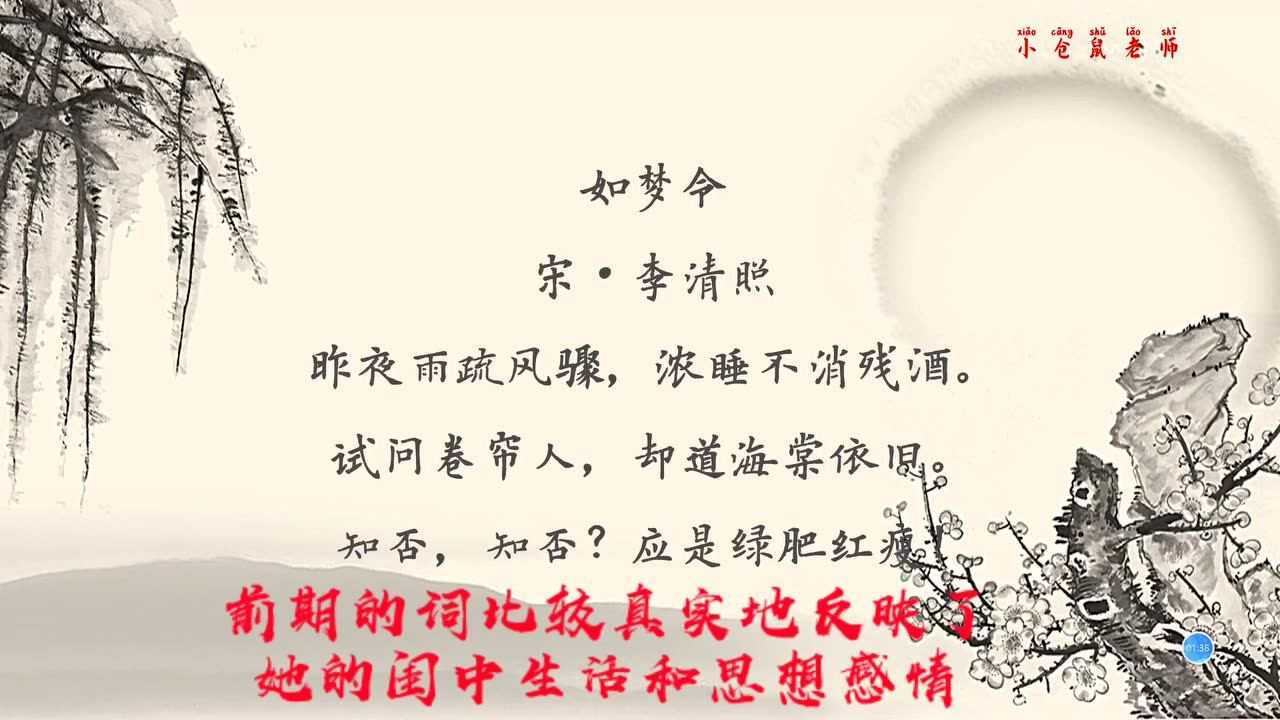 xiǎo cāng shǔ lǎo shī
小仓鼠老师
如梦令
宋·李清照
昨夜雨疏风骤，浓睡不消残酒。
试问卷帘人，却道海棠依旧。
知否，知否？应是绿肥红瘦！
前期的词比较真实地反映了
她的闺中生活和思想感情
01:38